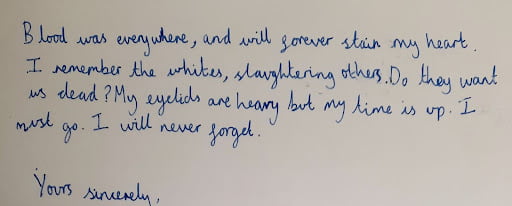 Blood was everywhere, and will forever stain my heart.
I remember the whites, slaughtering others. Do they want
us dead? My eyelids are heavy but my time is up. I
must go. I will never forget.
Yours sincerely,